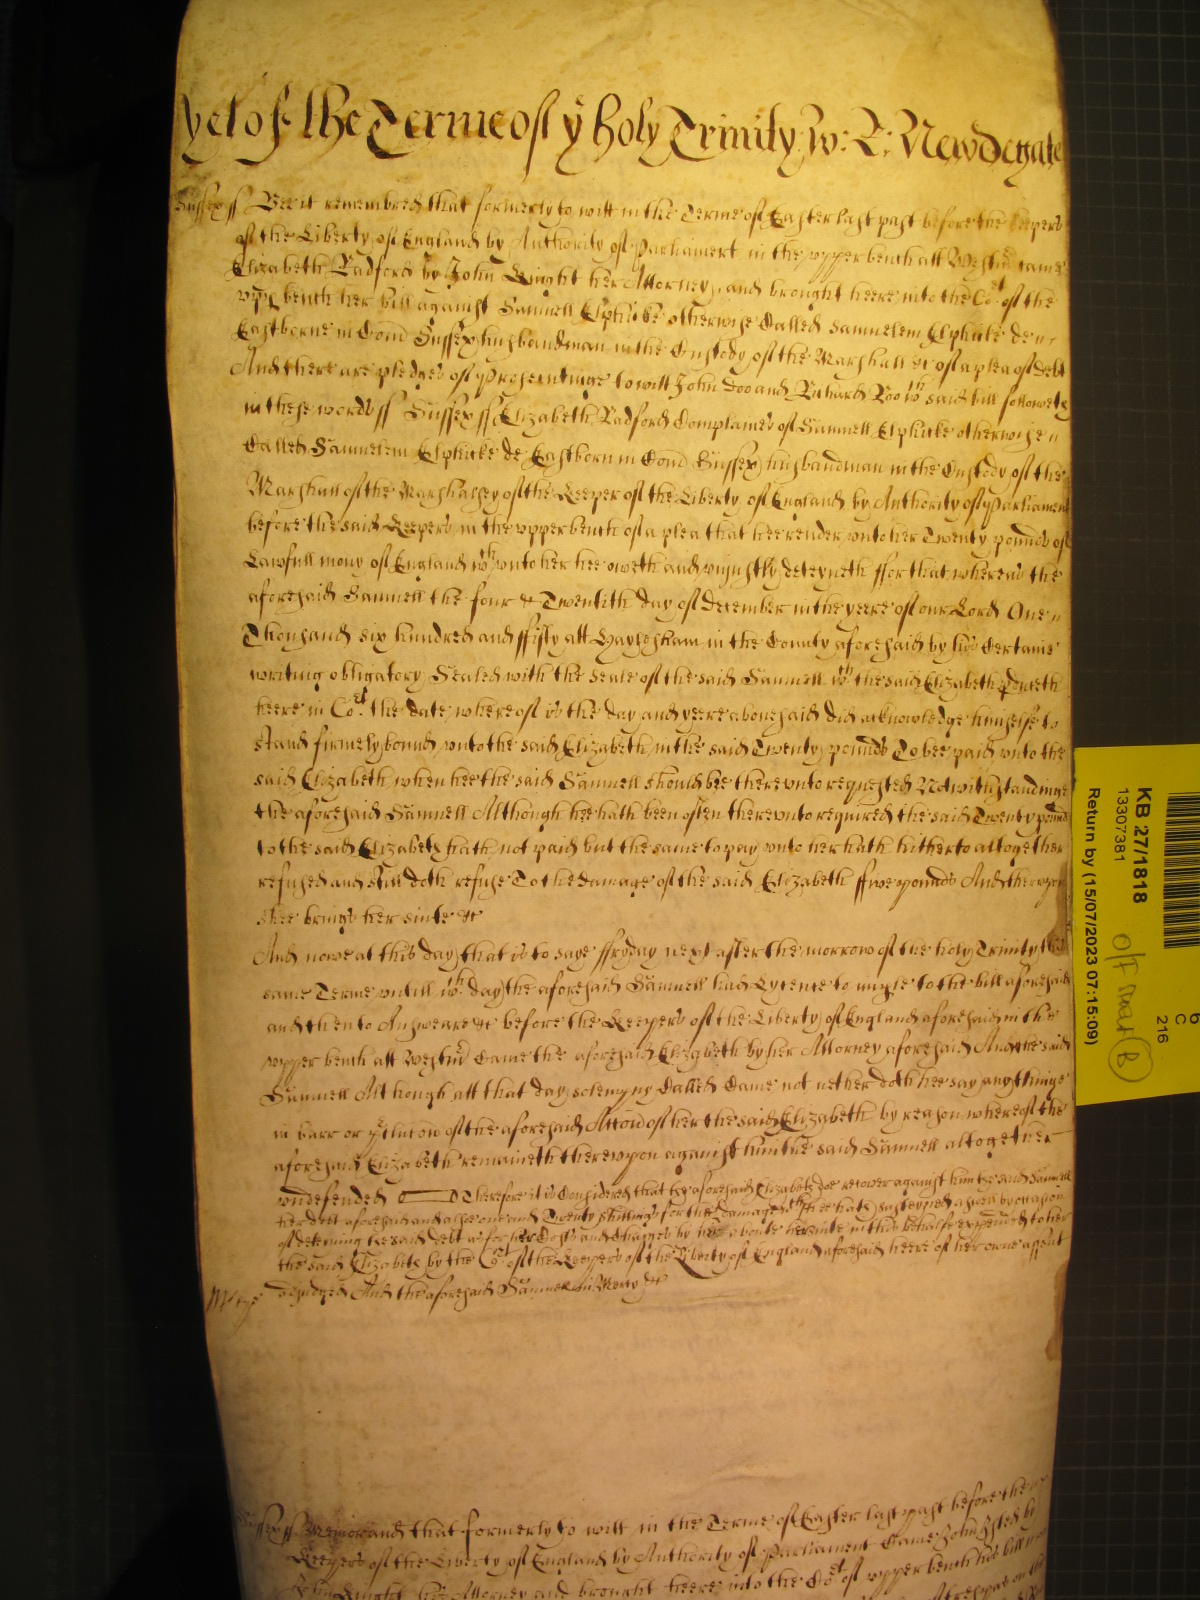 yet of the Terme of ye holy Trinity w: R: Newdegate
Sussex ss Bee it remembred that formerly to witt in the Terme of Easter last past before the Keepers
of the Liberty of England by Authority of Parliament in the upper bench att Westmr came
Elizabeth Radford by John Knight her Attorney and brought heere into the Cort of the
upp bench her bill against Samuell Elphicke otherwise Called Samuelem Elphicke de
Eastborne in Com Sussex husbandman in the Custody of the Marshall &c of a plea of debt
And there are pledges of prosecutinge to witt John Doo and Richard Roo wch said bill followeth
in these words ss Sussex ss Elizabeth Radford Complaines of Samuell Elphicke otherwise
Called Samuelem Elphicke de Eastborn in Com Sussex husbandman in the Custody of the
Marshall of the Marshalsey of the Keeper of the Liberty of England by Authority of Parliament
before the said Keepers in the upper bench of a plea that hee render unto her Twenty pounds of
Lawfull mony of England wch unto her hee oweth and uniustly deteyneth ffor that whereas the
aforesaid Samuell the four & Twentith day of december in the yeere of our Lord One
Thousand six hundred and ffifty att Haylesham in the County aforesaid by his Certaine
writing obligatory Sealed with the seale of the said Samuell wch the said Elizabeth bringeth
heere in Cort the date whereof is the day and yeere abovesaid did acknowledge himselfe to
stand firmely bound unto the said Elizabeth in the said Twenty pounds To bee paid unto the
said Elizabeth when hee the said Samuell should bee thereunto requested Notwithstandinge
the aforesaid Samuell Although hee hath been often thereunto required the said Twenty pound
to the said Elizabeth hath not paid but the same to pay unto her hath hitherto altogether
refused and still doth refuse To the damage of the said Elizabeth ffive pounds And thereupon
shee brings her suite &c
And nowe at this day that is to saye ffryday next after the morrow of the holy Trinity this
same Terme untill wch day the aforesaid Samuell had Lycence to imple to the bill aforesaid
and then to Answeare &c before the Keepers of the Liberty of England aforesaid in the
upper bench att Westmr Came the aforesaid Elizabeth by her Attorney aforesaid And the said
Samuell Although att that day solempny Called Came not nether doth hee say anythinge
in barr or pclucon of the aforesaid Accon of her the said Elizabeth by reason whereof the
aforesaid Elizabeth remaineth thereupon against him the said Samuell altogether
undefended Therefore it is Considered that the aforesaid Elizabeth doe recover against him the said Samuell
her debt aforesaid and alsoe one and Twenty shillings for the damages wch shee hath susteyned aswell by occasion
of deteining the said debt as for her Costs and Charges by her aboute her suite in this behalfe expended to her
the said Elizabeth by the Cort of the Keepers of the Liberty of England aforesaid heere of her owne assent
adiudged And the aforesaid Samuell in Mercy &c
Sussex ss Memorand that formerly to witt in the Terme of Easter last past before the
Keepers of the Liberty of England by Authority of Parliament Came John
Knight his Attorney and brought heere into the Cort of upper bench his bill
KB 27/1818
13307381
Return by (15/07/2023 07:15:09)
C
216
B